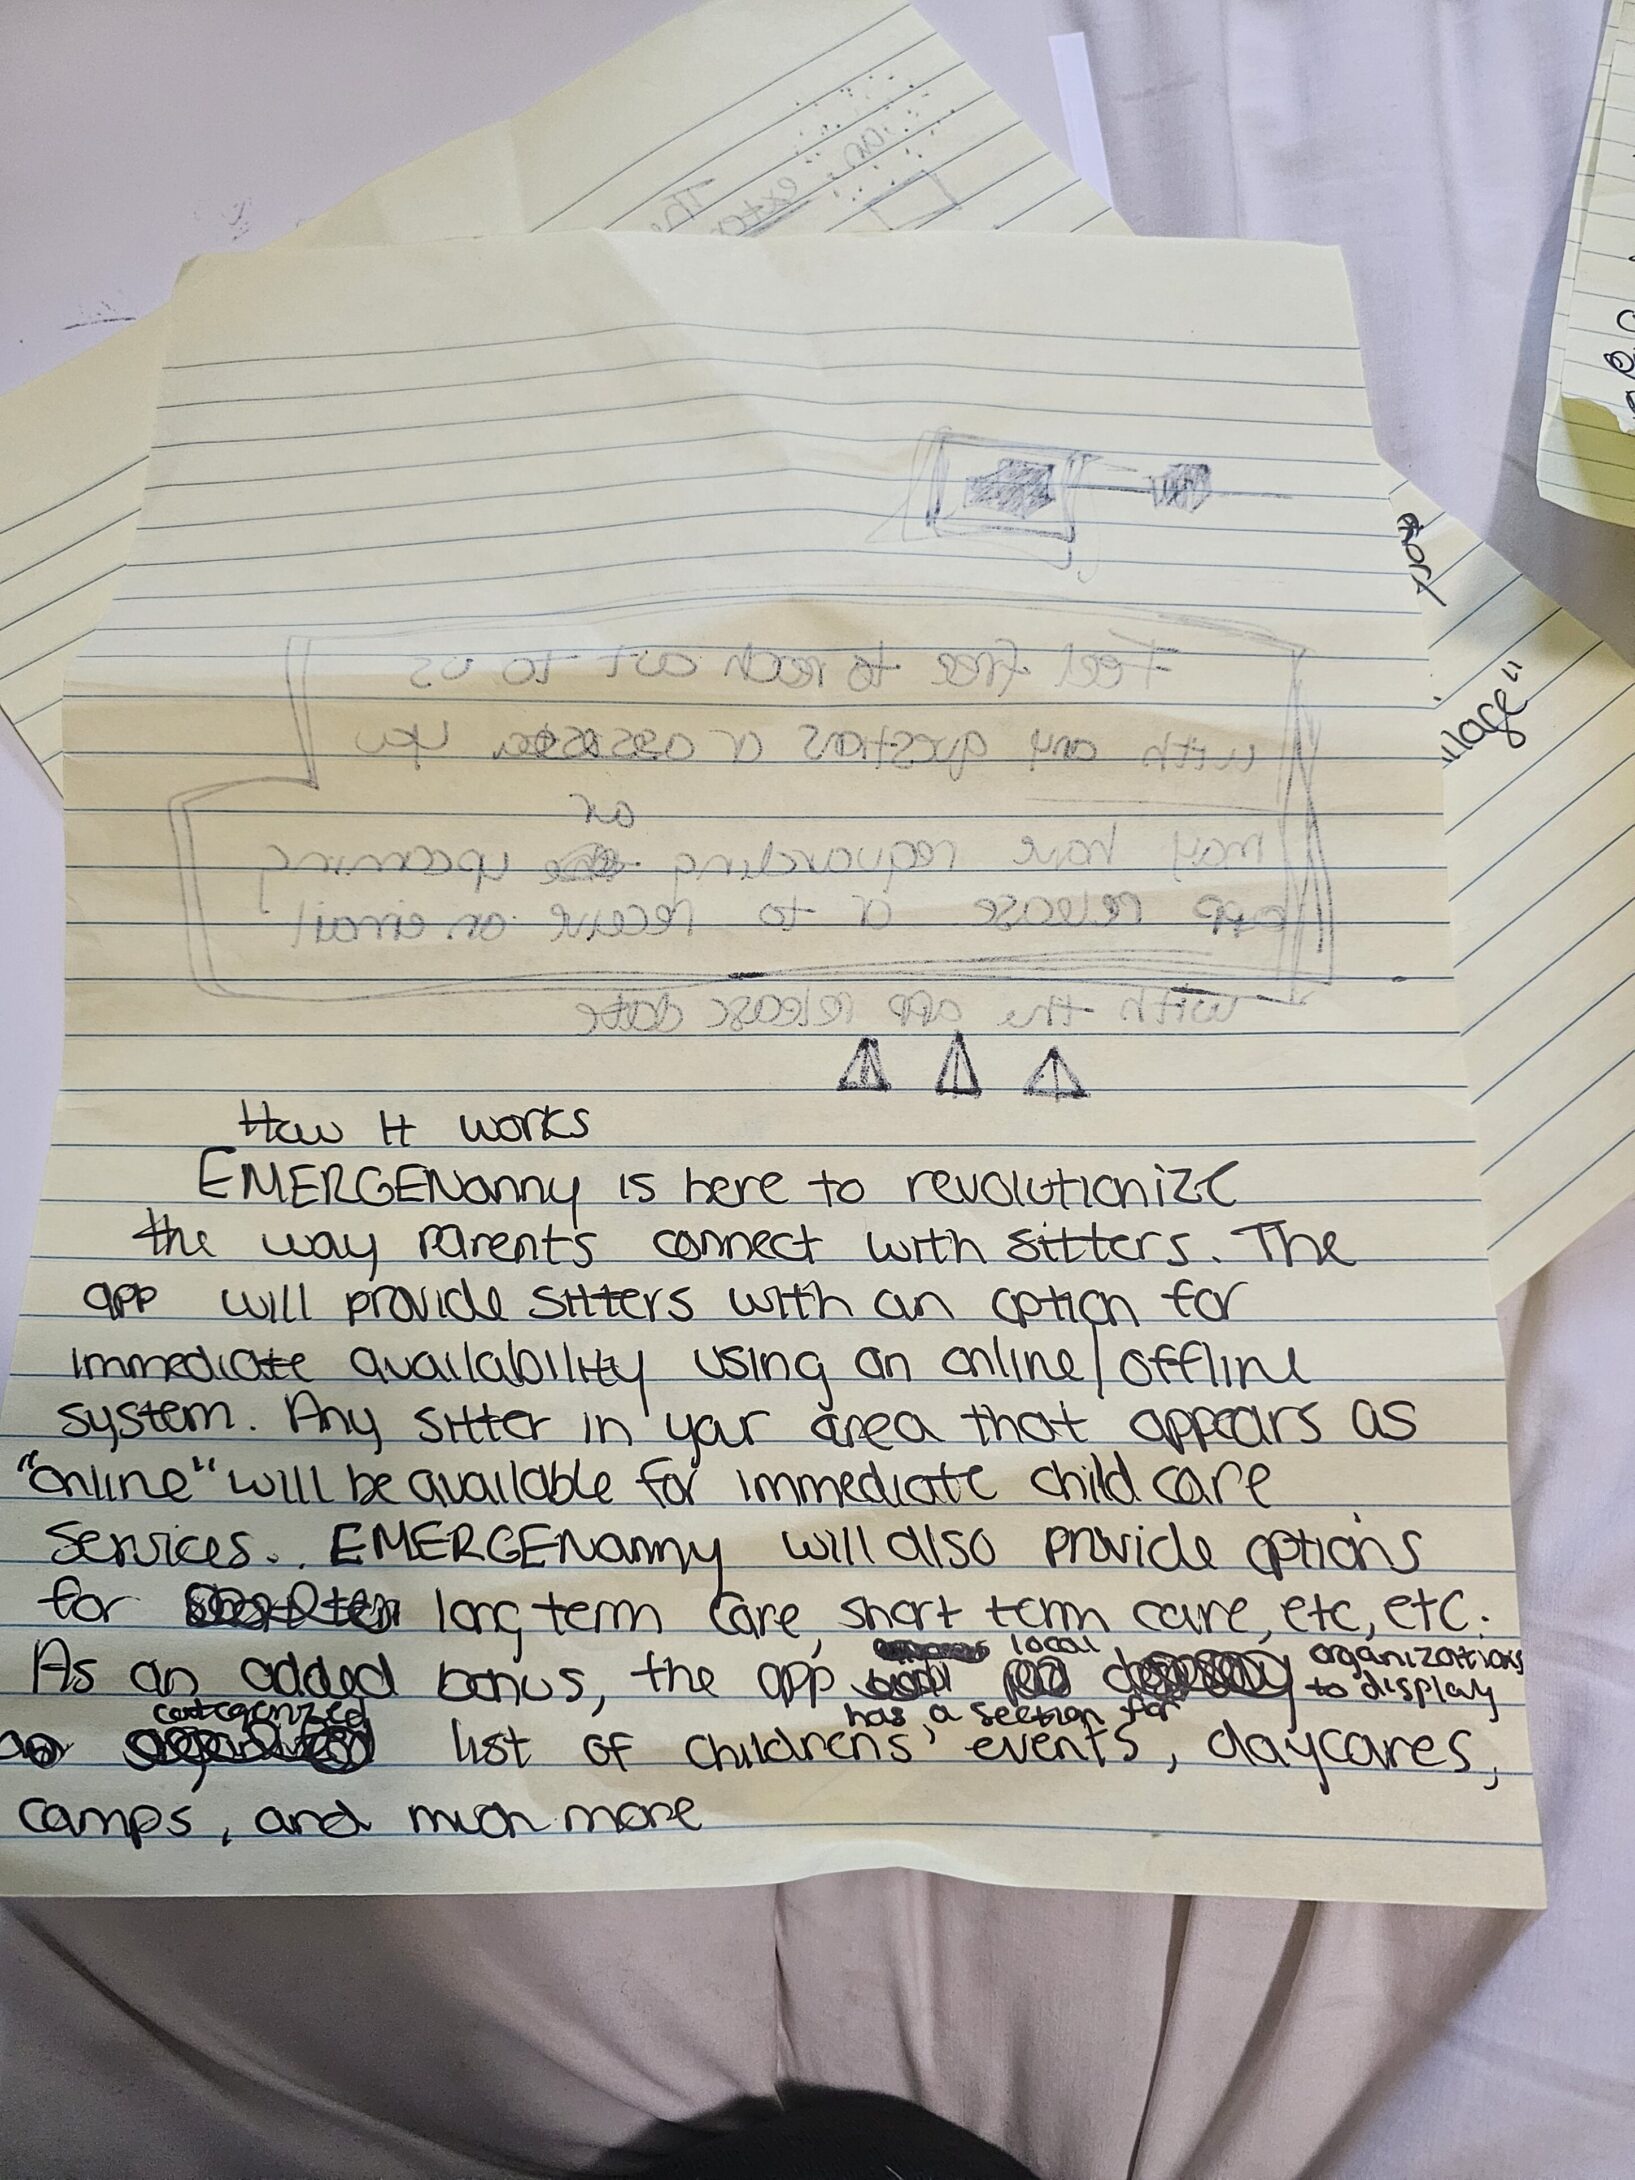 Feel free to reach out to us
with any questions or you
or
may have requarding upcoming
app release or to receive an email
with the app release date
How it works
EMERGENanny is here to revolutionize
the way parents connect with sitters. The
app will provide sitters with an option for
immediate availability using an online/offline
system. Any sitter in your area that appears as
"online" will be available for immediate child care
Services. EMERGENanny will also provide options
for long term care, short term care, etc, etc.
As an added bonus, the app has a section for local organizations to display
a categorized list of childrens' events, daycares,
camps, and much more
llage"